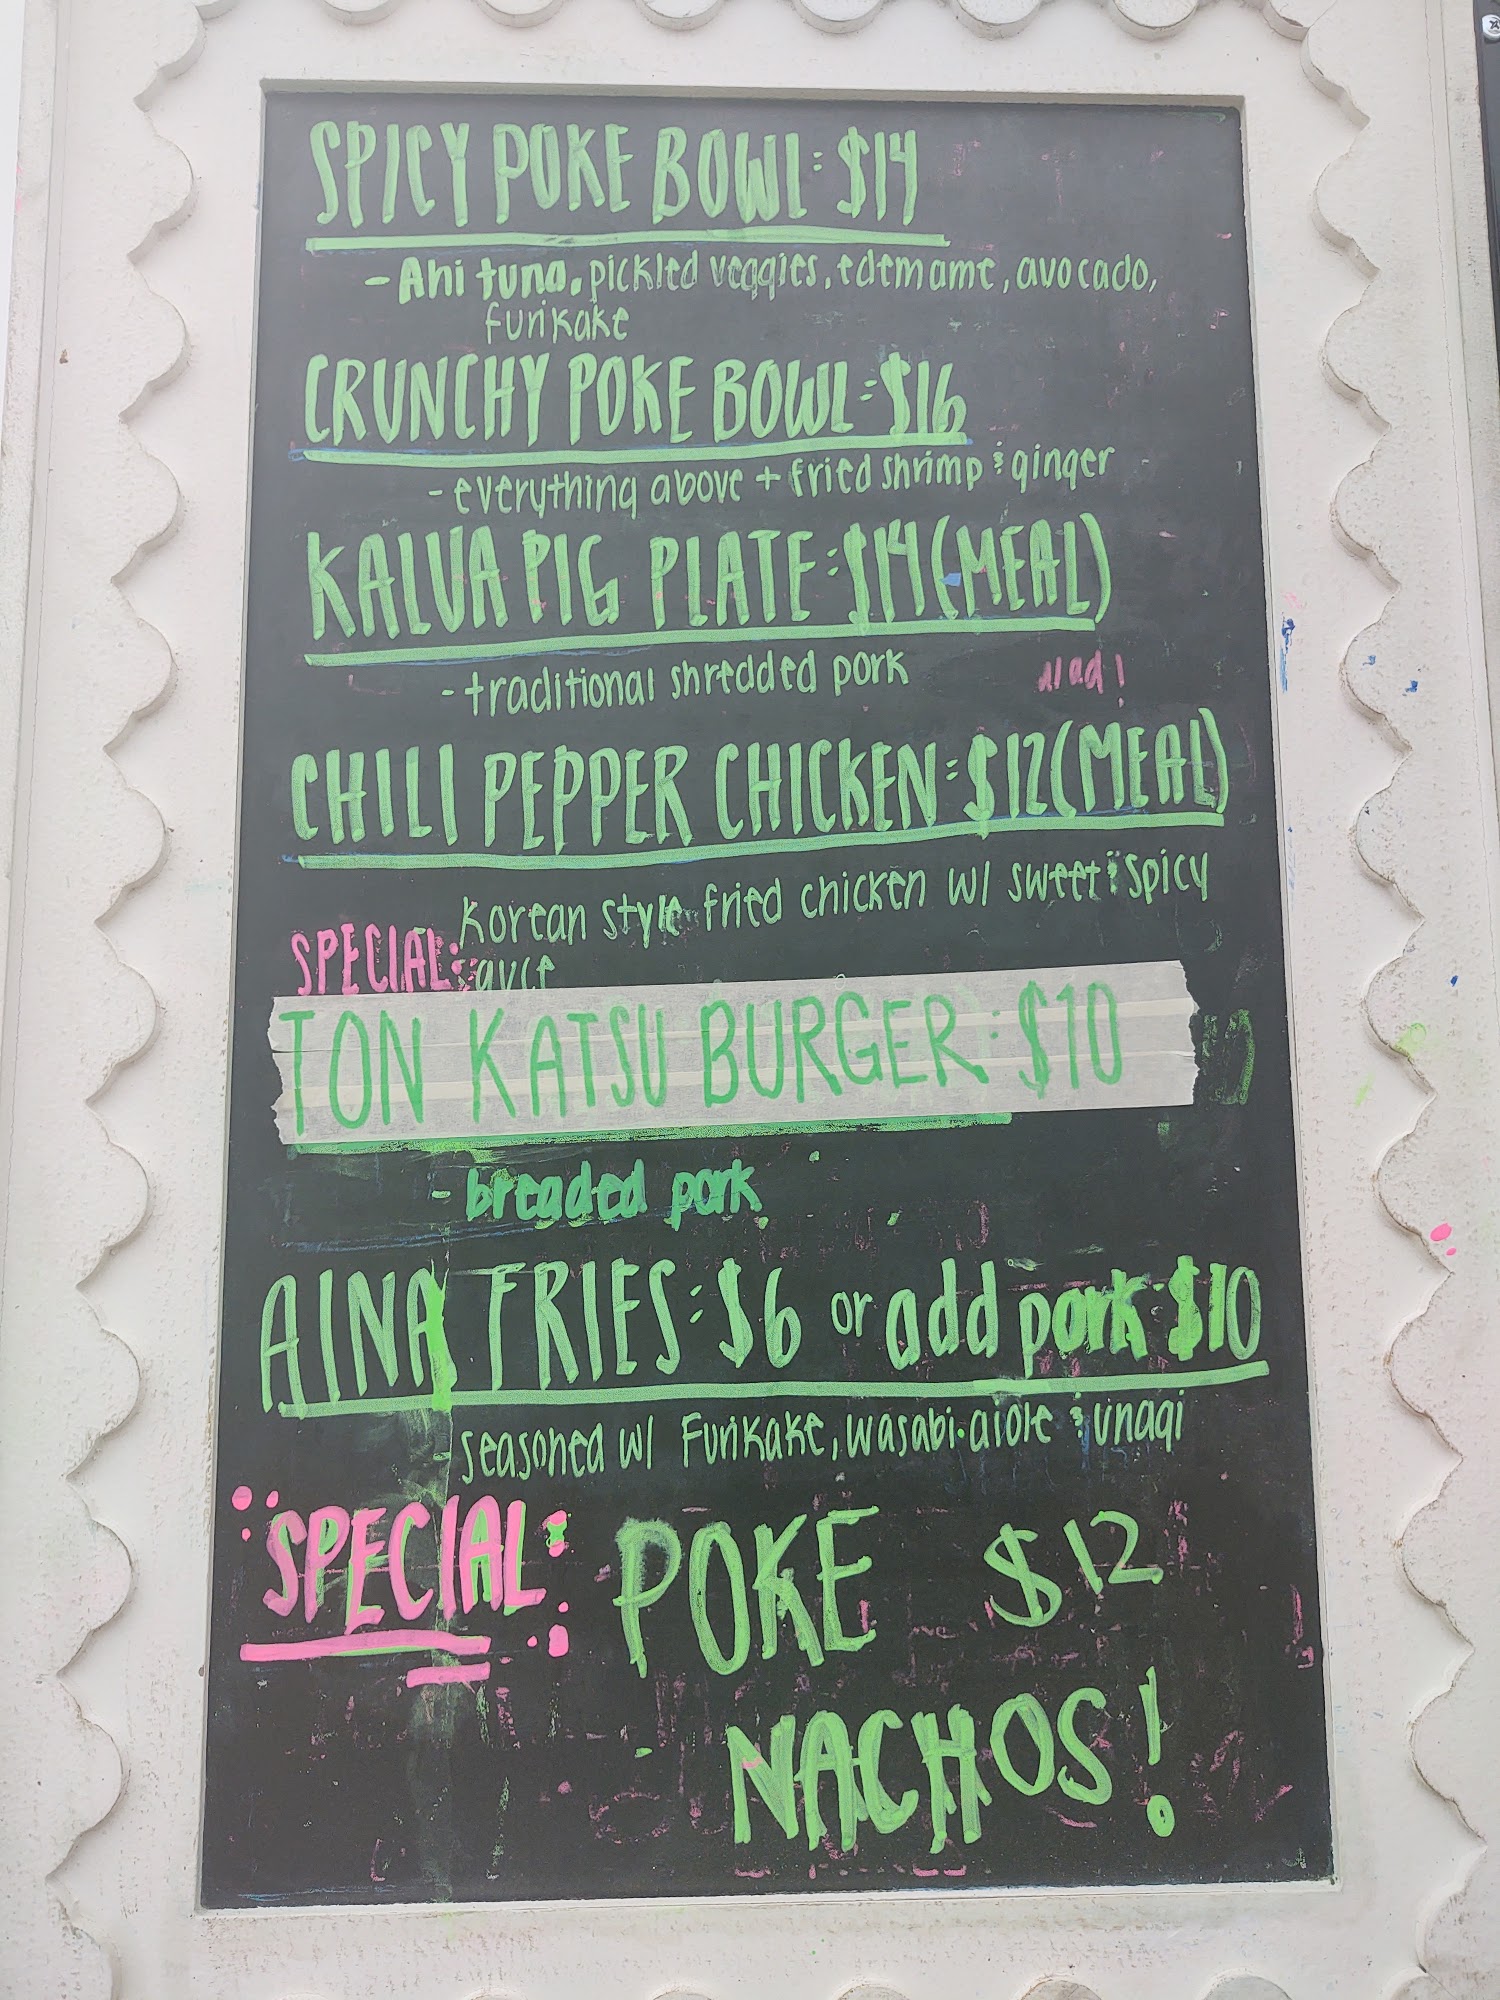 SPICY POKE BOWL: $14
- Ahi tuna, pickled veggies, edemame, avocado,
furikake
CRUNCHY POKE BOWL: $16
- everything above + fried shrimp & ginger
KALUA PIG PLATE: $14 (MEAL)
- traditional shredded pork
CHILI PEPPER CHICKEN: $12 (MEAL)
Korean style fried chicken w/ sweet & spicy
SPECIAL: sauce
TON KATSU BURGER: $10
- breaded pork
AINA FRIES: $6 or add pork: $10
seasoned w/ Furikake, wasabi aiole & unagi
SPECIAL: POKE $12
NACHOS!